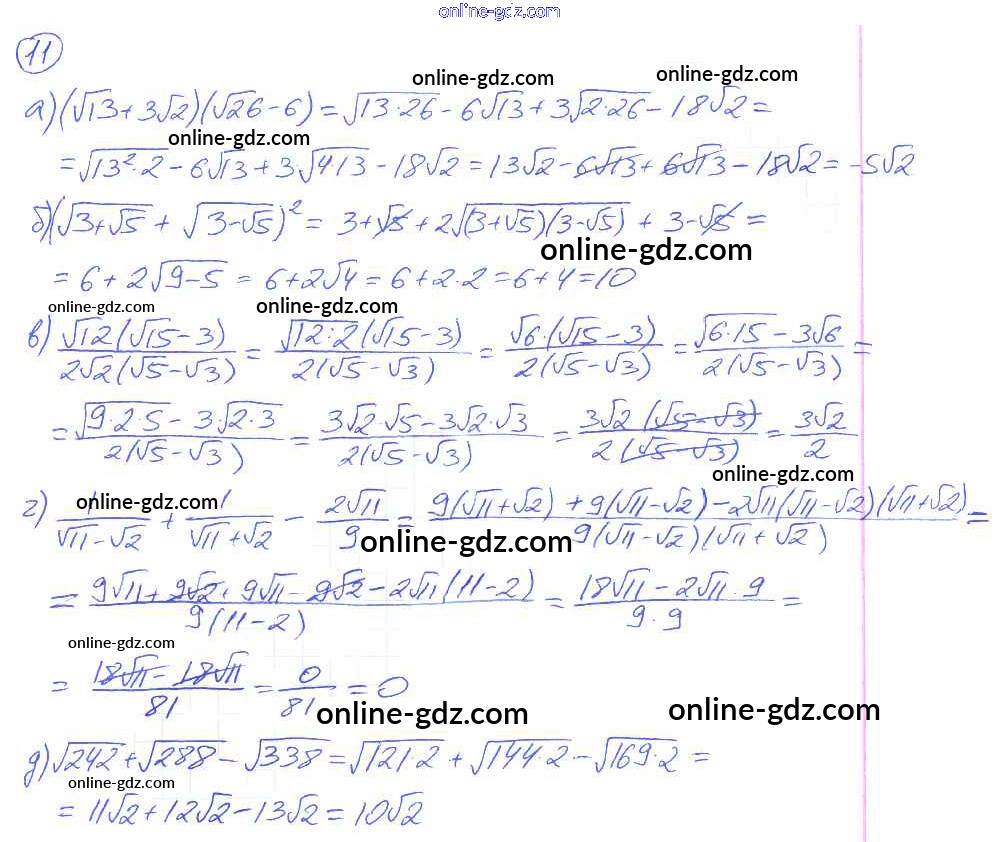 online-gdz.com
11
online-gdz.com online-gdz.com
а) (√13 + 3√2)(√26 - 6) = √13·26 - 6√13 + 3√2·26 - 18√2 =
online-gdz.com
= √13²·2 - 6√13 + 3·√4·13 - 18√2 = 13√2 - 6√13 + 6√13 - 18√2 = -5√2
б) (√3+√5 + √3-√5)² = 3+√5 + 2√(3+√5)(3-√5) + 3-√5 =
online-gdz.com
= 6 + 2√9-5 = 6+2√4 = 6+2·2 = 6+4 = 10
online-gdz.com online-gdz.com
в) √12(√15-3)/2√2(√5-√3) = √12:2(√15-3)/2(√5-√3) = √6·(√15-3)/2(√5-√3) = √6·15 - 3√6/2(√5-√3) =
= √9·2·5 - 3·√2·3/2(√5-√3) = 3√2·√5 - 3√2·√3/2(√5-√3) = 3√2(√5-√3)/2(√5-√3) = 3√2/2
online-gdz.com
online-gdz.com
г) 1/√11-√2 + 1/√11+√2 - 2√11/9 = 9(√11+√2) + 9(√11-√2) - 2√11(√11-√2)(√11+√2)/9(√11-√2)(√11+√2) =
online-gdz.com online-gdz.com
= 9√11 + 9√2 + 9√11 - 9√2 - 2√11(11-2)/9(11-2) = 18√11 - 2√11·9/9·9 =
online-gdz.com
= 18√11 - 18√11/81 = 0/81 = 0
online-gdz.com online-gdz.com
д) √242 + √288 - √338 = √121·2 + √144·2 - √169·2 =
online-gdz.com
= 11√2 + 12√2 - 13√2 = 10√2